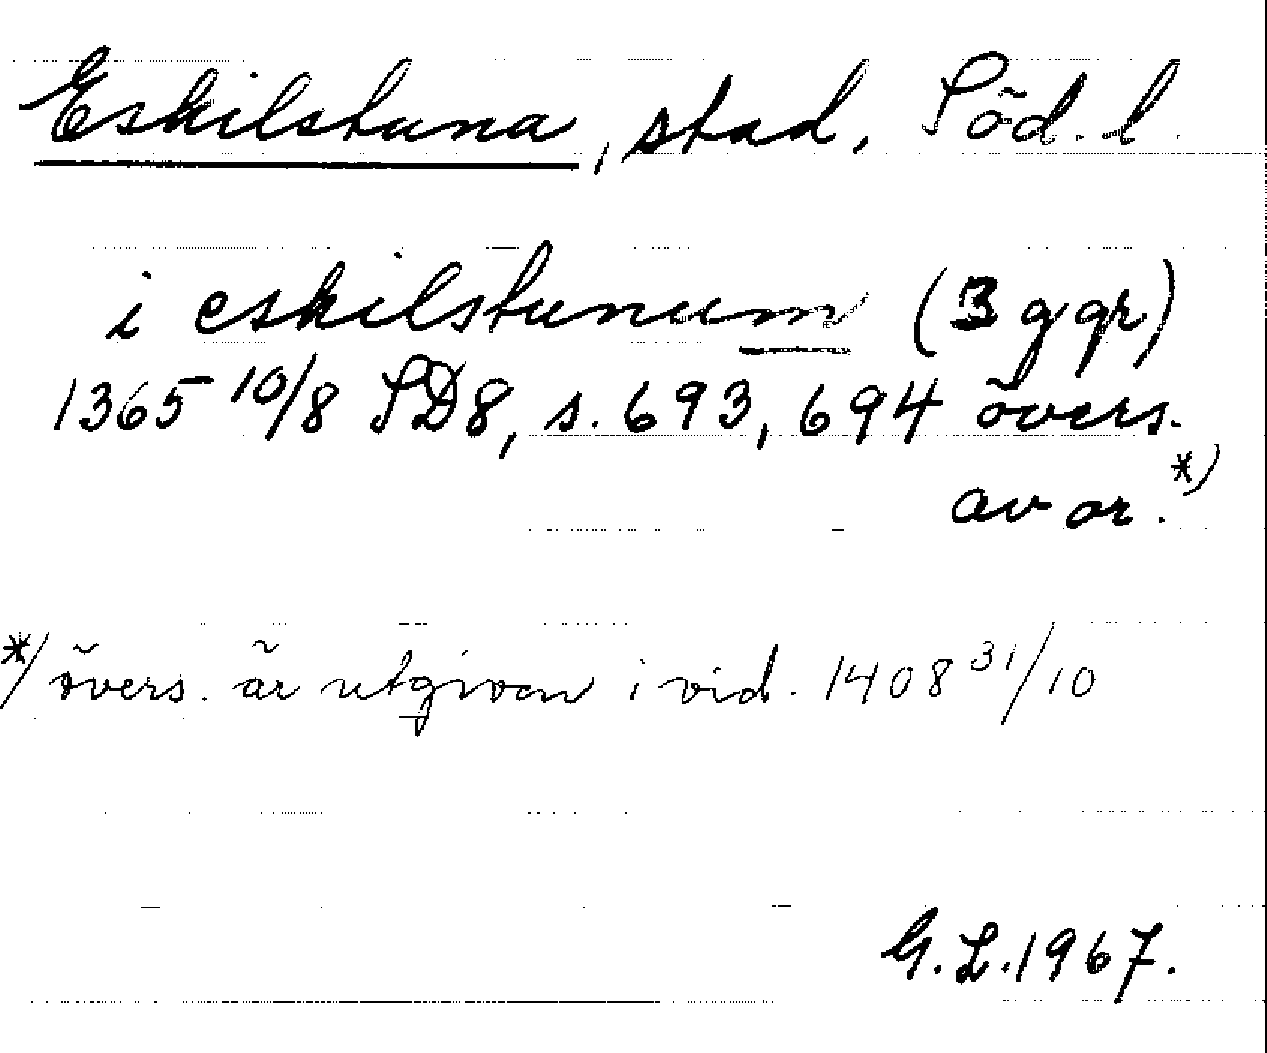 Eskilstuna, stad. Söd. l.
i eskilstunum (3 ggr)
1365 10/8 SD8, s. 693, 694 övers.
av or. *)
*/ övers. är utgiven i vid. 1408 31/10
G.L. 1967.